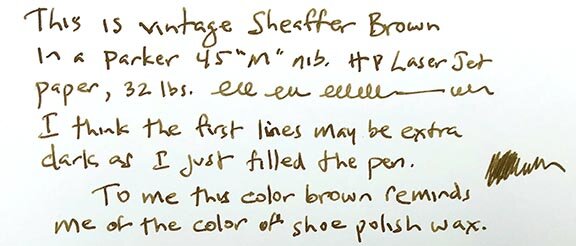 This is vintage Sheaffer Brown
In a Parker 45 "M" nib. HP LaserJet
paper, 32 lbs.
I think the first lines may be extra
dark as I just filled the pen.
To me this color brown reminds
me of the color of shoe polish wax.